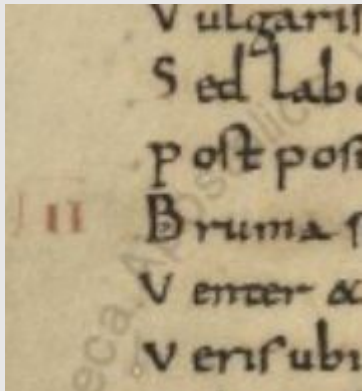 Vulgariſ
Sed labo
poſt poſt
II Bruma ſ
Venter &
Veriſ ubi